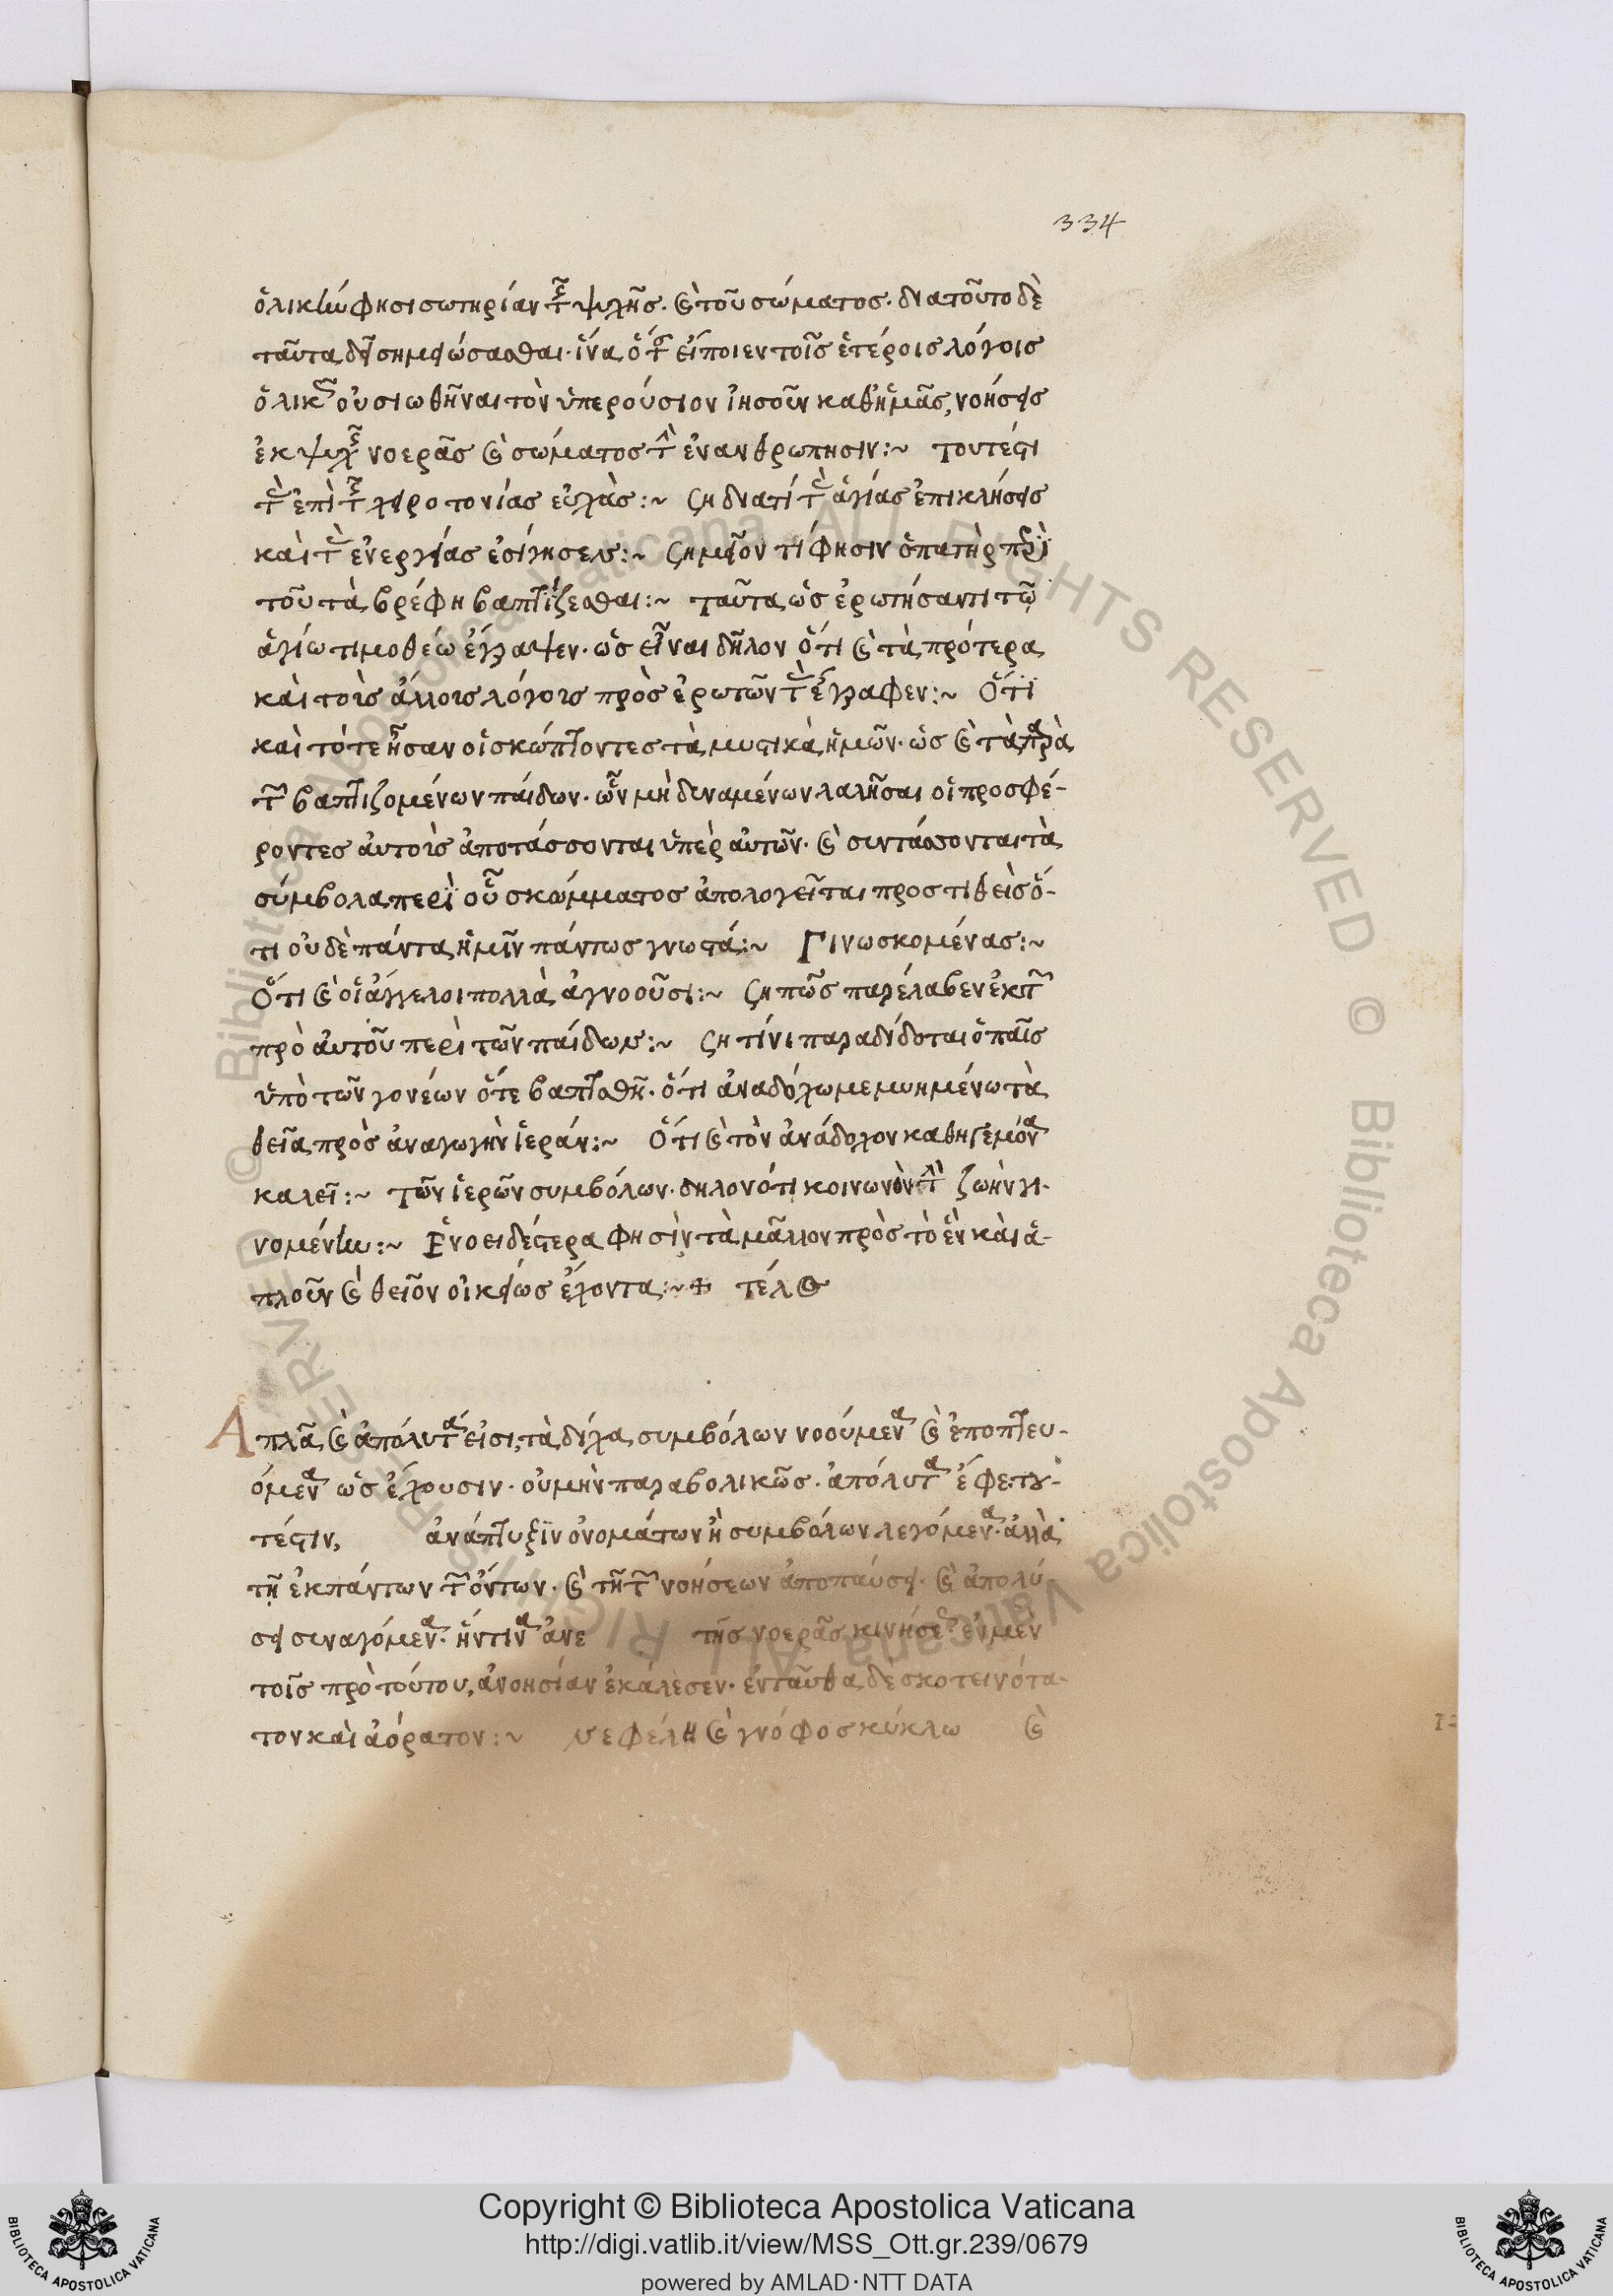 334
ὁλικὴν φησι σωτηρίαν τῆς ψυχῆς· καὶ τοῦ σώματος· διατοῦτο δὲ
ταῦτα δεῖ σημειώσασθαι· ἵνα ὅταν εἴποι ἐν τοῖς ἑτέροις λόγοις
ὁλικῶς οὐσιωθῆναι τὸν ὑπερούσιον ἰησοῦν καθ' ἡμᾶς, νοήσεις
ἐκ ψυχῆς νοερᾶς καὶ σώματος τὴν ἐνανθρώπησιν:~ τουτέστι
τὰς ἐπὶ τῆς χειροτονίας εὐχάς:~ ση διατί τὰς ἁγίας ἐπικλήσεις
καὶ τὰς ἐνεργείας ἐσίγησεν:~ σημεῖον τί φησιν ὁ πατὴρ περὶ
τοῦ τὰ βρέφη βαπτίζεσθαι:~ ταῦτα ὡς ἐρωτήσαντι τῷ
ἁγίω τιμοθέω ἔγραψεν· ὡς εἶναι δῆλον ὅτι καὶ τὰ πρότερα
καὶ τοὺς ἄλλους λόγους πρὸς ἐρωτῶντας ἔγραφεν:~ Ὅτι
καὶ τότε ἦσαν οἱ σκώπτοντες τὰ μυστικὰ ἡμῶν· ὡς καὶ τὰ παρὰ
τῶν βαπτιζομένων παίδων· ὧν μὴ δυναμένων λαλῆσαι οἱ προσφέ-
ροντες αὐτοὺς ἀποτάσσονται ὑπὲρ αὐτῶν· καὶ συντάσσονται τὰ
σύμβολα περὶ οὗ σκώμματος ἀπολογεῖται προστιθεὶς ὅ-
τι οὐδὲ πάντα ἡμῖν πάντως γνωστά:~ Γινωσκομένας:~
Ὅτι καὶ οἱ ἄγγελοι πολλὰ ἀγνοοῦσι:~ ση πῶς παρέλαβεν ἐκ τῶν
πρὸ αὐτοῦ περὶ τῶν παίδων:~ ση τίνι παραδίδοται ὁ παῖς
ὑπὸ τῶν γονέων ὅτε βαπτισθῆ· ὅτι ἀναδόχω μεμυημένω τὰ
θεῖα πρὸς ἀναγωγὴν ἱεράν:~ Ὅτι καὶ τὸν ἀνάδοχον καθηγεμόνα
καλεῖ:~ τῶν ἱερῶν συμβόλων· δηλονότι κοινωνὸν τὴν ζωὴν γι-
νομένην:~ Ἑνοειδέστερα φησὶν τὰ μᾶλλον πρὸς τὸ ἓν καὶ ἁ-
πλοῦν καὶ θεῖον οἰκείως ἔχοντα:~ + τέλος
Ἁπλᾶ καὶ ἀπόλυτα εἰσι, τὰ δίχα συμβόλων νοούμενα καὶ ἐποπτευ-
όμενα ὡς ἔχουσιν· οὐ μὴν παραβολικῶς· ἀπόλυτα ἔφε· του-
τέστιν, ἀνάπτυξιν ὀνομάτων ἢ συμβόλων λεγόμενα· ἀλλὰ
τῇ ἐκ πάντων τῶν ὄντων· καὶ τῇ τῶν νοήσεων ἀποπαύσει· καὶ ἀπολύ-
σει συναγόμενα· ἥντινα ἀνε τῆς νοερᾶς κινήσεως ἐν μὲν
τοῖς πρὸ τούτου, ἀνοησίαν ἐκάλεσεν· ἐνταῦθα δὲ σκοτεινότα-
τον καὶ ἀόρατον:~ νεφέλη καὶ γνόφος κύκλω καὶ
Copyright © Biblioteca Apostolica Vaticana
http://digi.vatlib.it/view/MSS_Ott.gr.239/0679
powered by AMLAD·NTT DATA